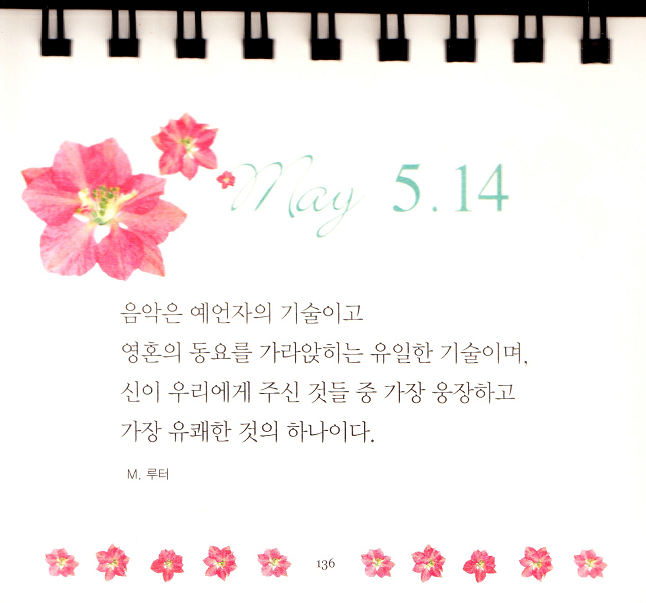 May 5.14
음악은 예언자의 기술이고
영혼의 동요를 가라앉히는 유일한 기술이며,
신이 우리에게 주신 것들 중 가장 웅장하고
가장 유쾌한 것의 하나이다.
M. 루터
136